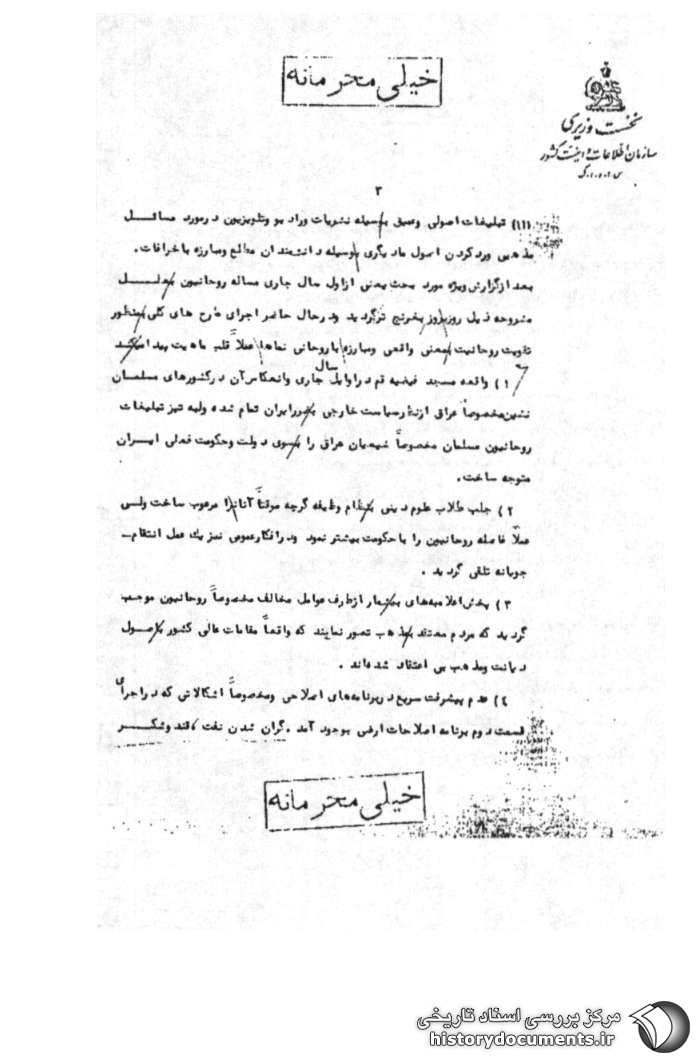 خیلی محرمانه
نخست وزیری
سازمان اطلاعات و امنیت کشور
س.ا.و.ا.ک
۳
(III) تبلیغات اصولی وعمیق بوسیله نشریات ورادیو وتلویزیون درمورد مسائل
مذهبی وردکردن اصول مادیگری بوسیله دانشمندان مطلع ومبارزه باخرافات.
بعدازگزارش ویژه مورد بحث یعنی ازاول سال جاری مساله روحانیون بدلیل
مشروحه ذیل روزبروز بغرنج ترگردید ودرحال حاضر اجرای طرح های کلی بمنظور
تقویت روحانیت بمعنی واقعی ومبارزه باروحانی نماها عملاً قلب ماهیت پیدا میکند
۱) واقعه مسجد فیضیه قم دراوایل سال جاری وانعکاس آن درکشورهای مسلمان
نشین مخصوصاً عراق ازنظرسیاست خارجی بضررایران تمام شده ولبه تیز تبلیغات
روحانیون مسلمان مخصوصاً شیعیان عراق را بسوی دولت وحکومت فعلی ایران
متوجه ساخت.
۲) جلب طلاب علوم دینی بنظام وظیفه گرچه موقتاً آنانرا مرعوب ساخت ولی
عملاً فاصله روحانیون را باحکومت بیشتر نمود ودرافکارعمومی نیزیک عمل انتقام_
جویانه تلقی گردید.
۳) پخش اعلامیه‌های بیشمار ازطرف عوامل مخالف مخصوصاً روحانیون موجب
گردید که مردم معتقد بمذهب تصور نمایند که واقعاً مقامات عالی کشور باصول
دیانت ومذهب بی اعتقاد شده‌اند.
۴) عدم پیشرفت سریع دربرنامه‌های اصلاحی ومخصوصاً اشکالاتی که دراجرای
قسمت دوم برنامه اصلاحات ارضی بوجود آمد. گران شدن نفت، قند وشکر
خیلی محرمانه
مرکز بررسی اسناد تاریخی
historydocuments.ir